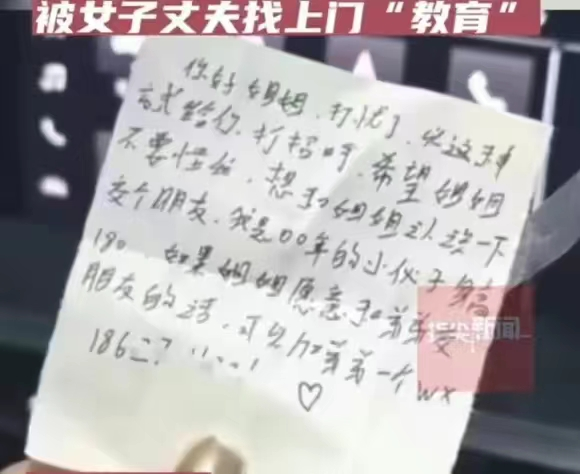 被女子丈夫找上门“教育”
你好姐姐,打扰了,以这种
方式给你打招呼,希望姐姐
不要怪罪,想和姐姐认识一下
交个朋友,我是00年的小伙子身高
180,如果姐姐愿意和弟弟交
朋友的话,可以加弟弟一个wx
186
♡
新闻